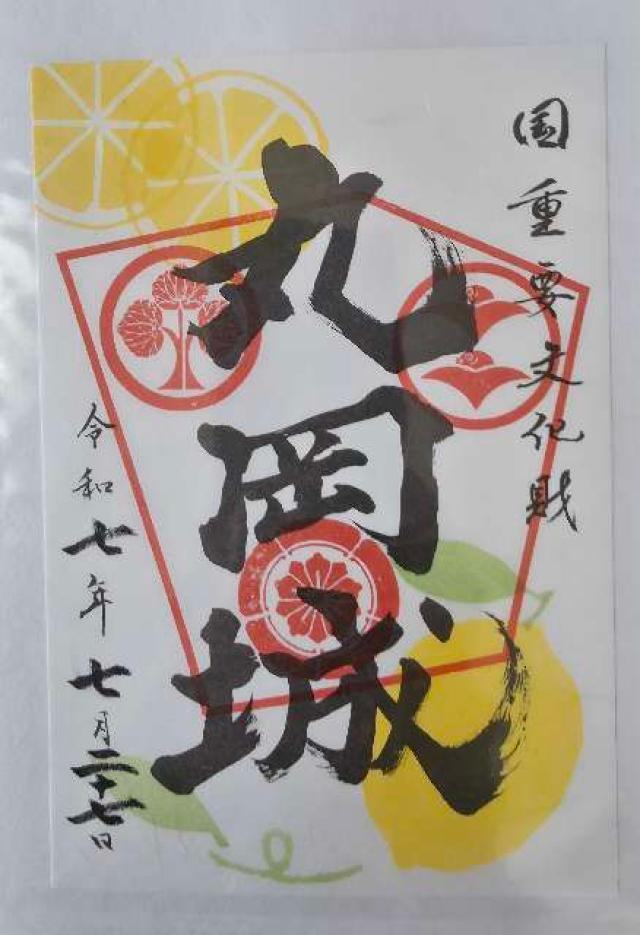 国重要文化財
丸岡城
令和七年七月二十七日